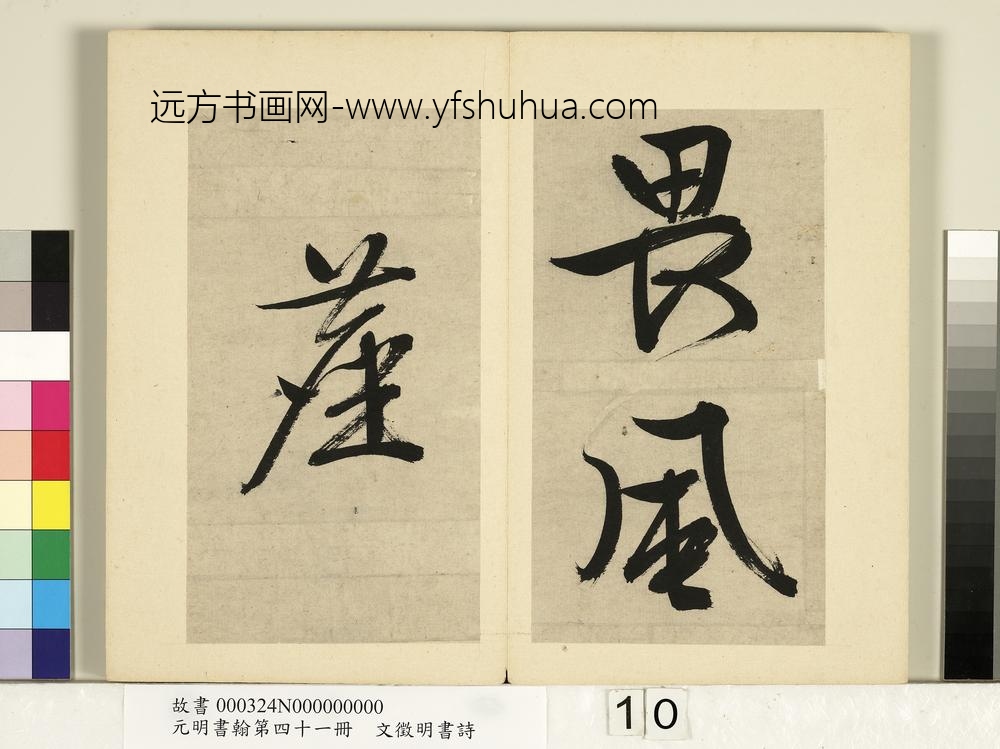 远方书画网-www.yfshuhua.com
畏風
塵
故書 000324N000000000
元明書翰第四十一冊 文徵明書詩
10